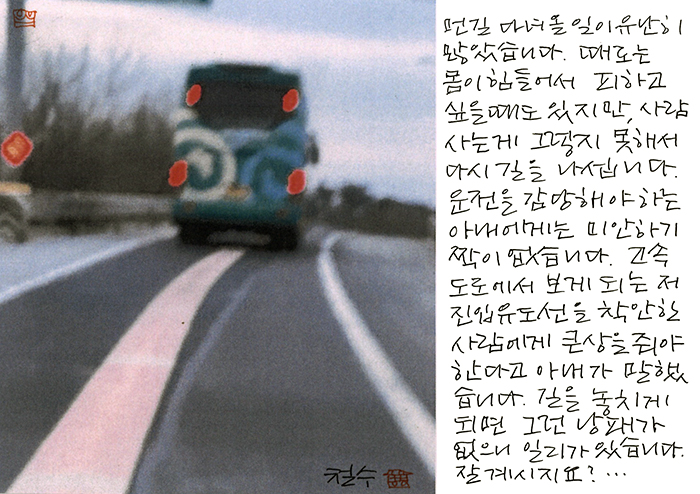 먼길 다녀올 일이 유난히
많았습니다. 때로는
몸이 힘들어서 피하고
싶을 때도 있지만, 사람
사는게 그렇지 못해서
다시 길을 나섭니다.
운전을 감당해야 하는
아내에게는 미안하기
짝이 없습니다. 고속
도로에서 보게 되는 저
진입유도선을 착안한
사람에게 큰상을 줘야
한다고 아내가 말했
습니다. 길을 놓치게
되면 그런 낭패가
없으니 일리가 있습니다.
잘 계시지요? …
철수